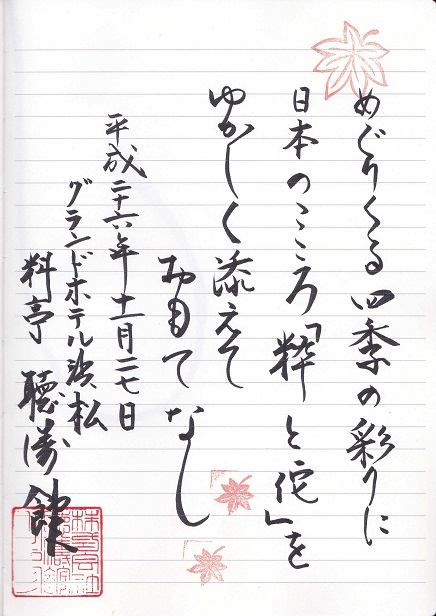 めぐりくる四季の彩りに
日本のこころ「粋と侘」を
ゆかしく添えて
おもてなし
平成二十六年十一月二七日
グランドホテル浜松
料亭 聴涛館
株式会社